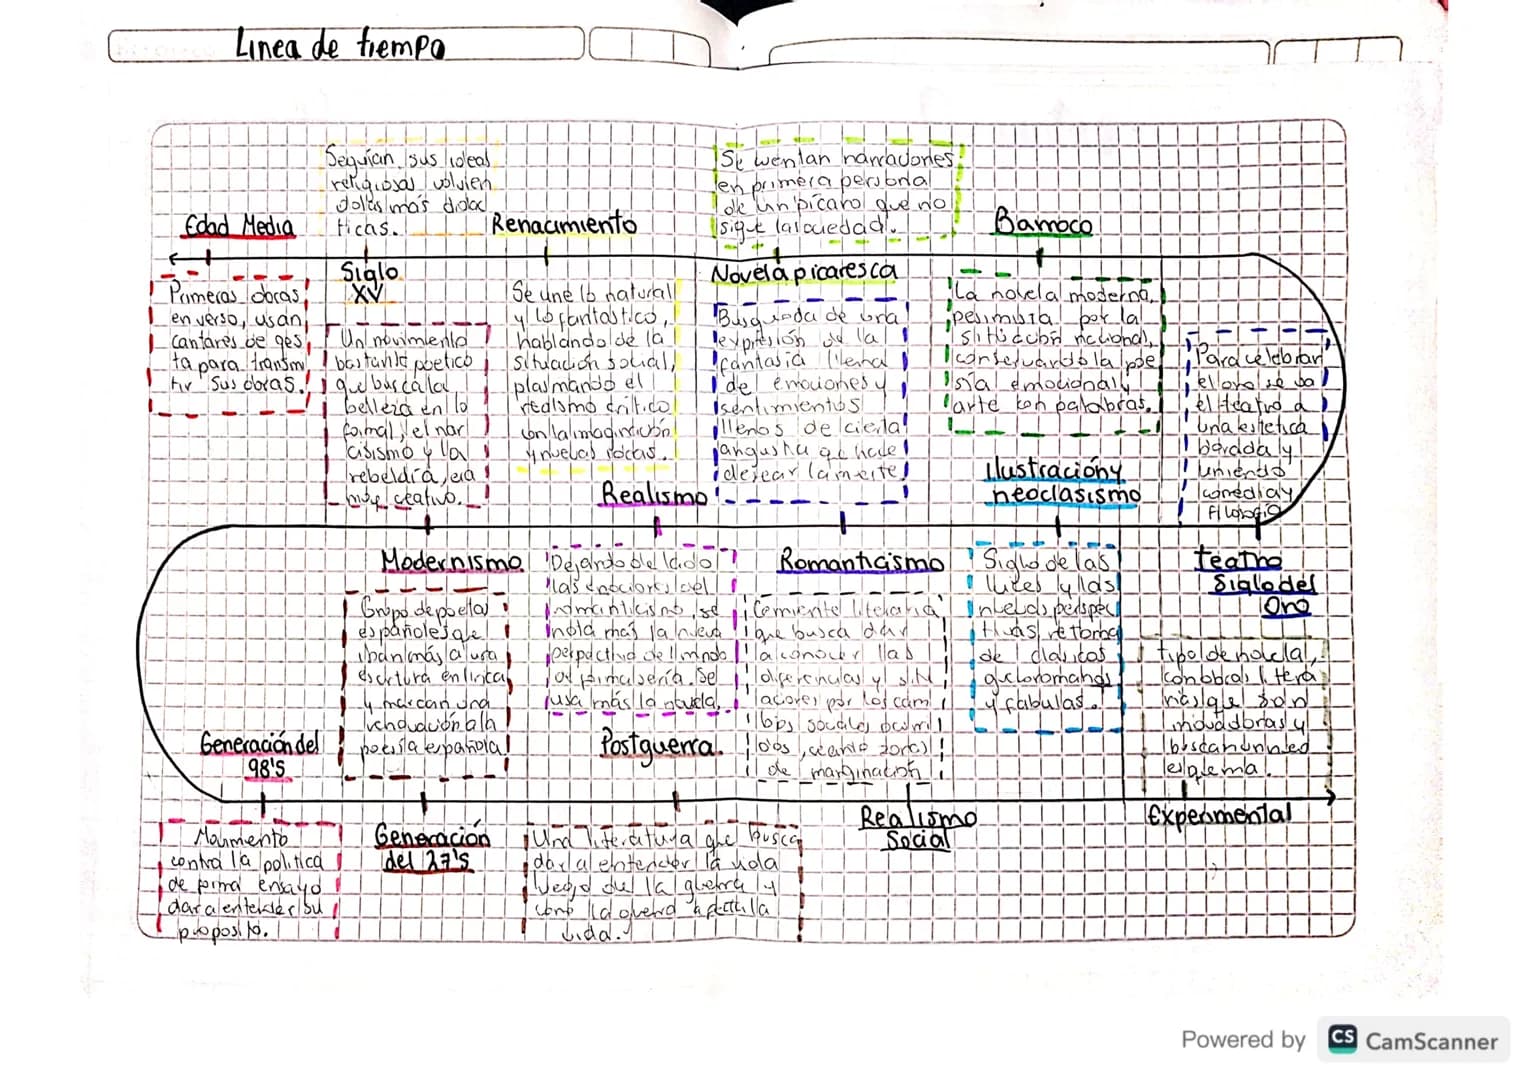 Linea de tiempo
Seguían sus ideas
religiosas volvien
dolas más didac
ticas.
Edad Media
Siglo
XV
Renacimiento
Se
narradores
en primera persona
de un pícaro que no
sigue la sociedad.
Novela picaresca
Barroco
Primeras obras
en verso, usan
cantares de ges
ta para transmi
tir sus obras.
Se une lo natural
y lo fantastico,
hablando de la
situación social,
plasmando el
realismo crítico
con la imaginación
y nuevas
La novela moderna,
pesimista por la
situación nacional,
conservando la poe
sía emocional y
arte con palabras.
Para celebrar
el
se da
el teatro a
una estética
y
uniendo
comedia y
Un movimiento
bastante poetico
que busca la
belleza en lo
formal, el nar
cisismo y la
rebeldía, era
muy creativo.
Modernismo
Realismo
Dejando de lado
las emociones del
romanticismo, se
nota más la nueva
perspectiva del mundo
Se
usa más la novela.
Busqueda de una
expresión de la
fantasía llena
de emociones y
sentimientos
llenos de cierta
angustia que hace
desear la muerte
Romanticismo
Ilustración y
neoclasismo
Siglo de las
luces y las
nuevas perspec
tivas, retoma
de clasicos
y fabulas.
teatro
Siglo del
Oro
Generación del
98's
Movimiento
contra la politica
de forma ensayo
dar a entender su
proposito.
Grupo de poetas
españoles que
iban más a una
escritura en lirica
y marcan una
a la
poesía española.
Generación
del 27's
Postguerra.
Una literatura que busca
dar a entender la vida
luego de la guerra y
como la guerra afecta la
vida.
literaria
que busca dar
a conocer las
diferencias y
por los cam
bios sociales
de marginación
Realismo
Social
tipo de novela,
con obras litera
rias que son
y
buscan un
esquema.
Experimental
Powered by CS CamScanner